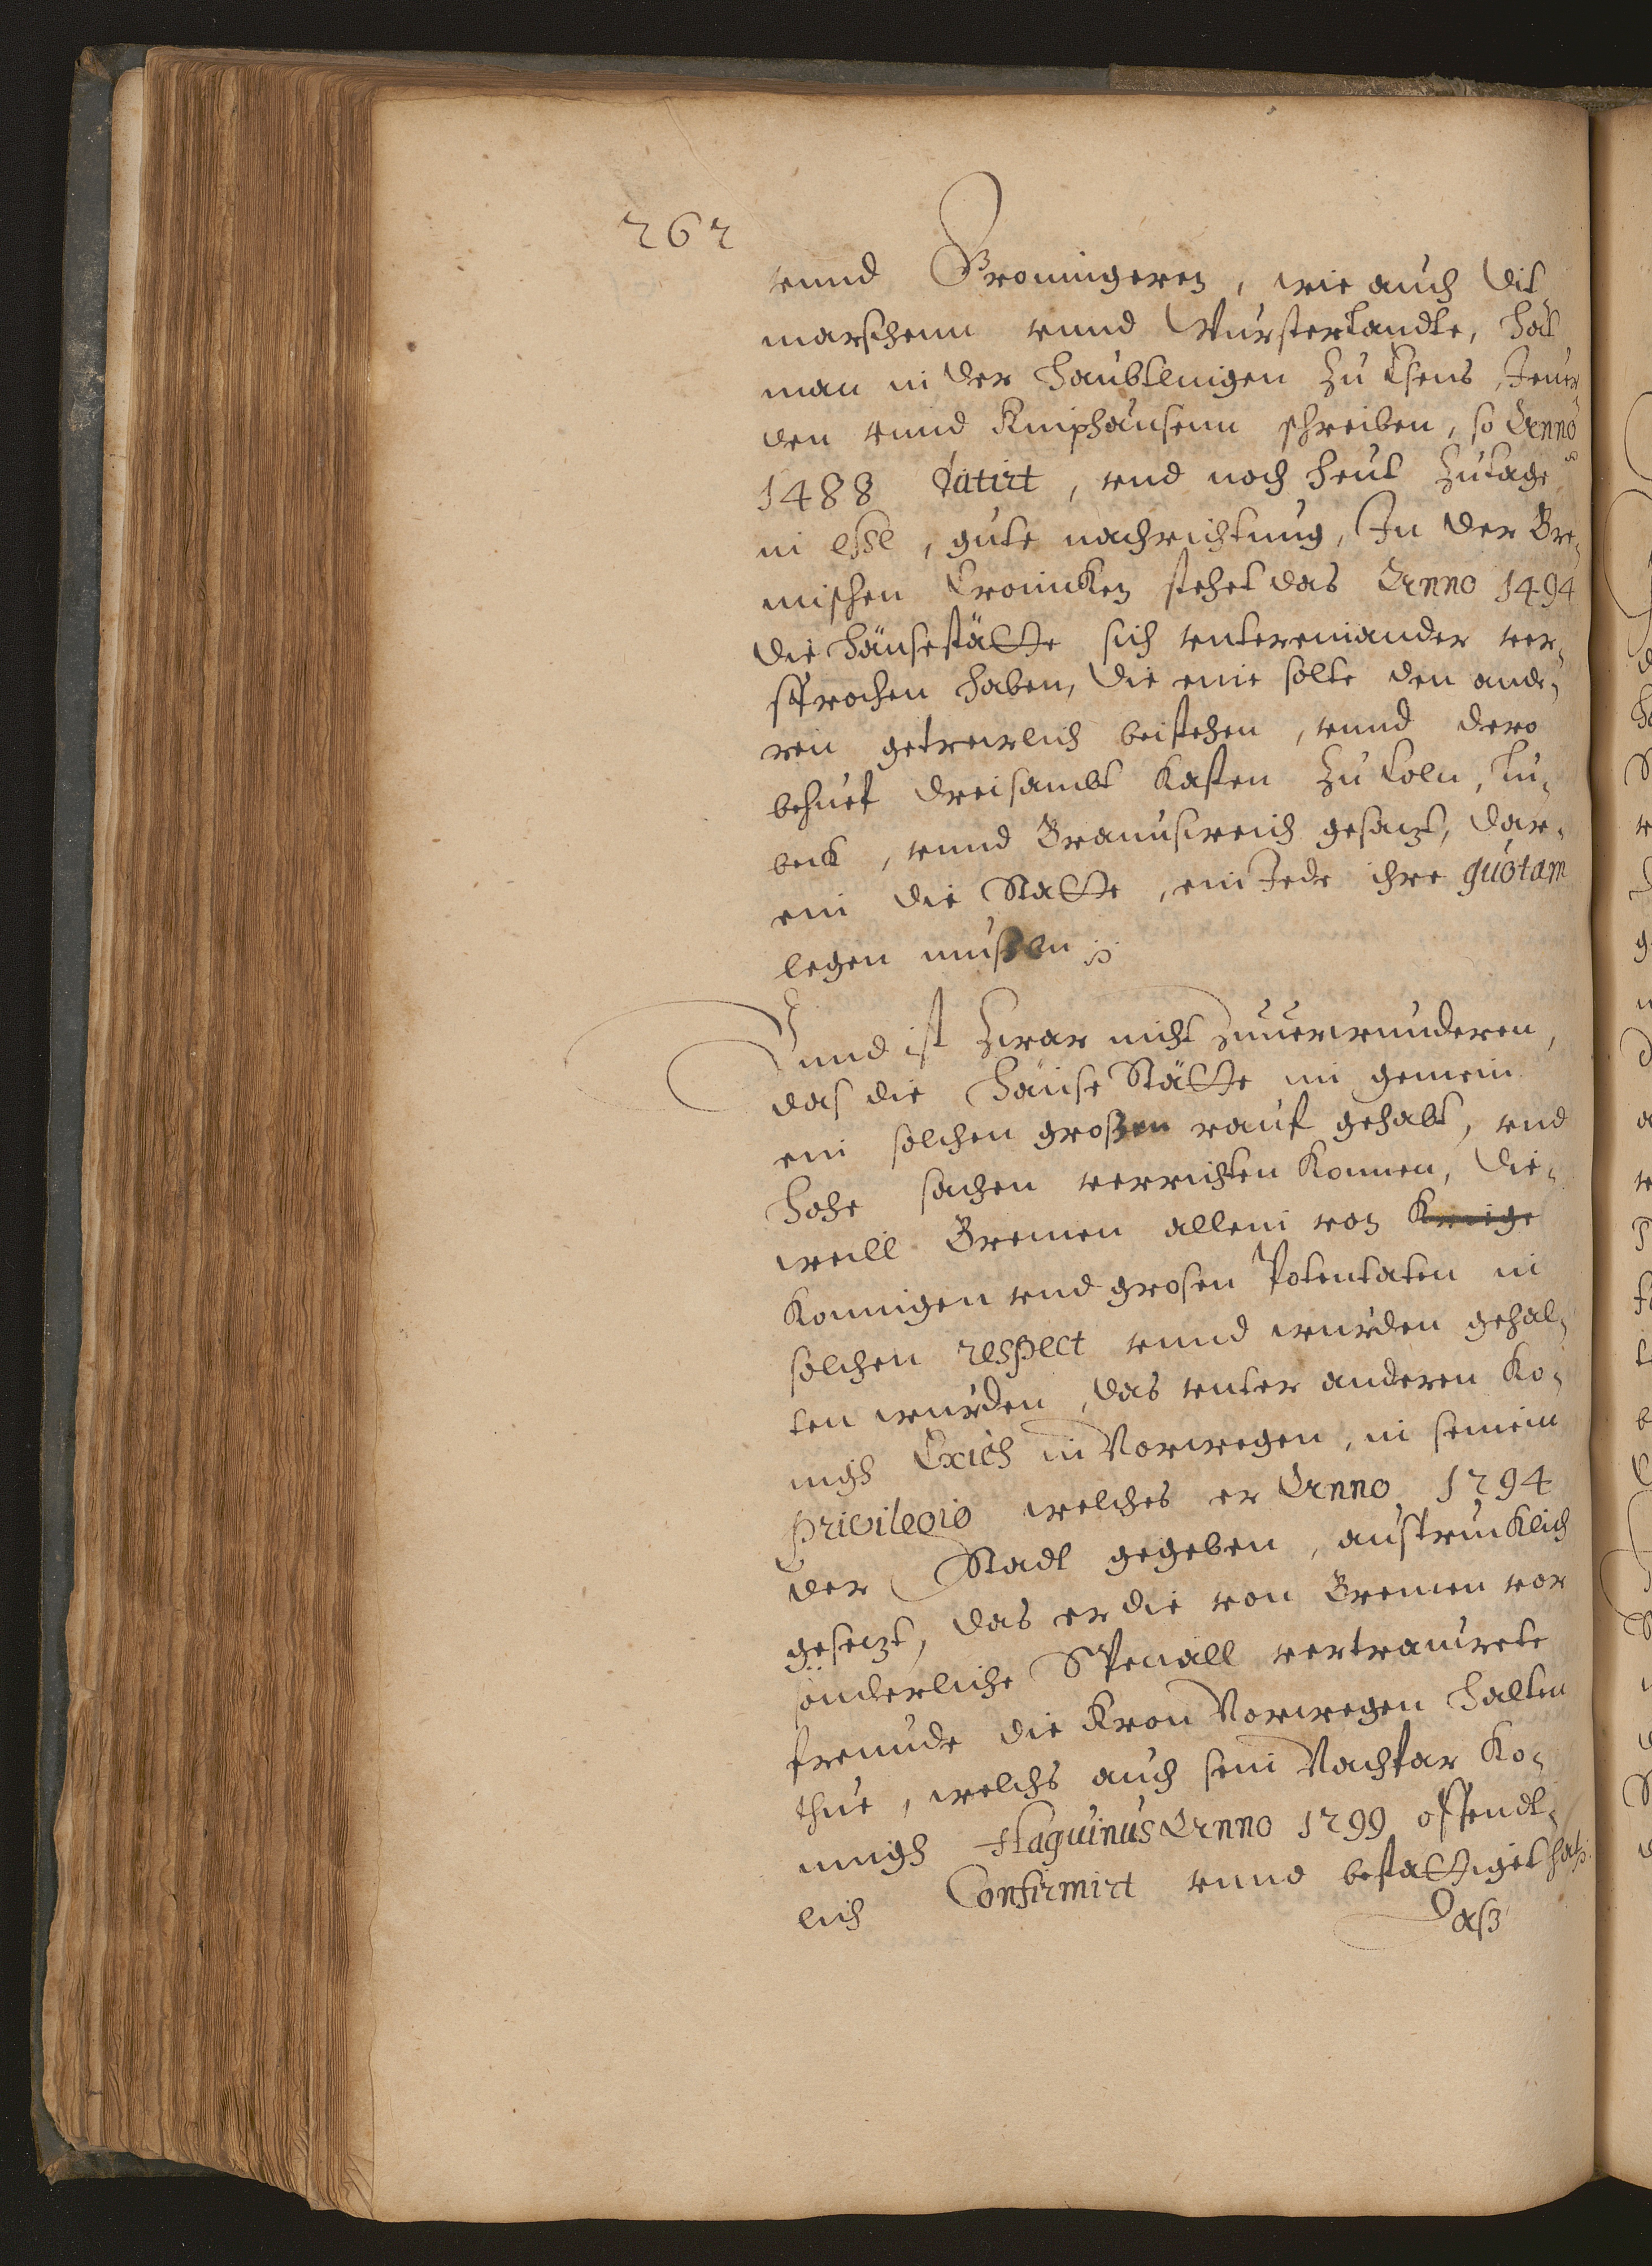 262
vnnd Groningeren, wie auch Dit
marschenn vnnd Wursterlandte, hat
man in der Haubtlingen zu Esens, Jeuer,
den vnnd Kniphausenn schreiben, so Anno
1488 datirt, vnd noch heut zutage
in esse, gute nachrichtung, In der Bre,
mischen Cronicken stehet das Anno 1494
die Hänsestätte sich vntereinander ver,
sprochen haben, die eine solte den ande,
ren getrewlich beistehen, vnnd dero
behuef dreisambt Kasten zu Coln, Lu,
beck, vnnd Braunswich gesazt, dar,
ein die Statte, ein Jede ihre quotam
legen mußen
Vnnd ist zwar nicht zuuerwunderen,
das die Hänse Stätte in gemein
ein solchen großen rauf gehabt, vnd
hohe sachen verrichten konnen, die,
weill Bremen allein von Kreige
Konnigen vnd grosen Potentaten in
solchen respect vnnd wurden gehal,
ten wurden, das vnter anderen Ko,
nigh Erich in Norwegen, in seinem
privilegio welches er Anno 1294
der Stadt gegeben, austrucklich
gesezt, das er die von Bremen vor
sonderliche Speciall vertrauwete
freunde die Kron Norwegen halten
thue, welchs auch sein Nachfar Ko,
nnigh Haquinus Anno 1299 offendt,
lich Confirmirt vnnd bestattiget hat.
Daß